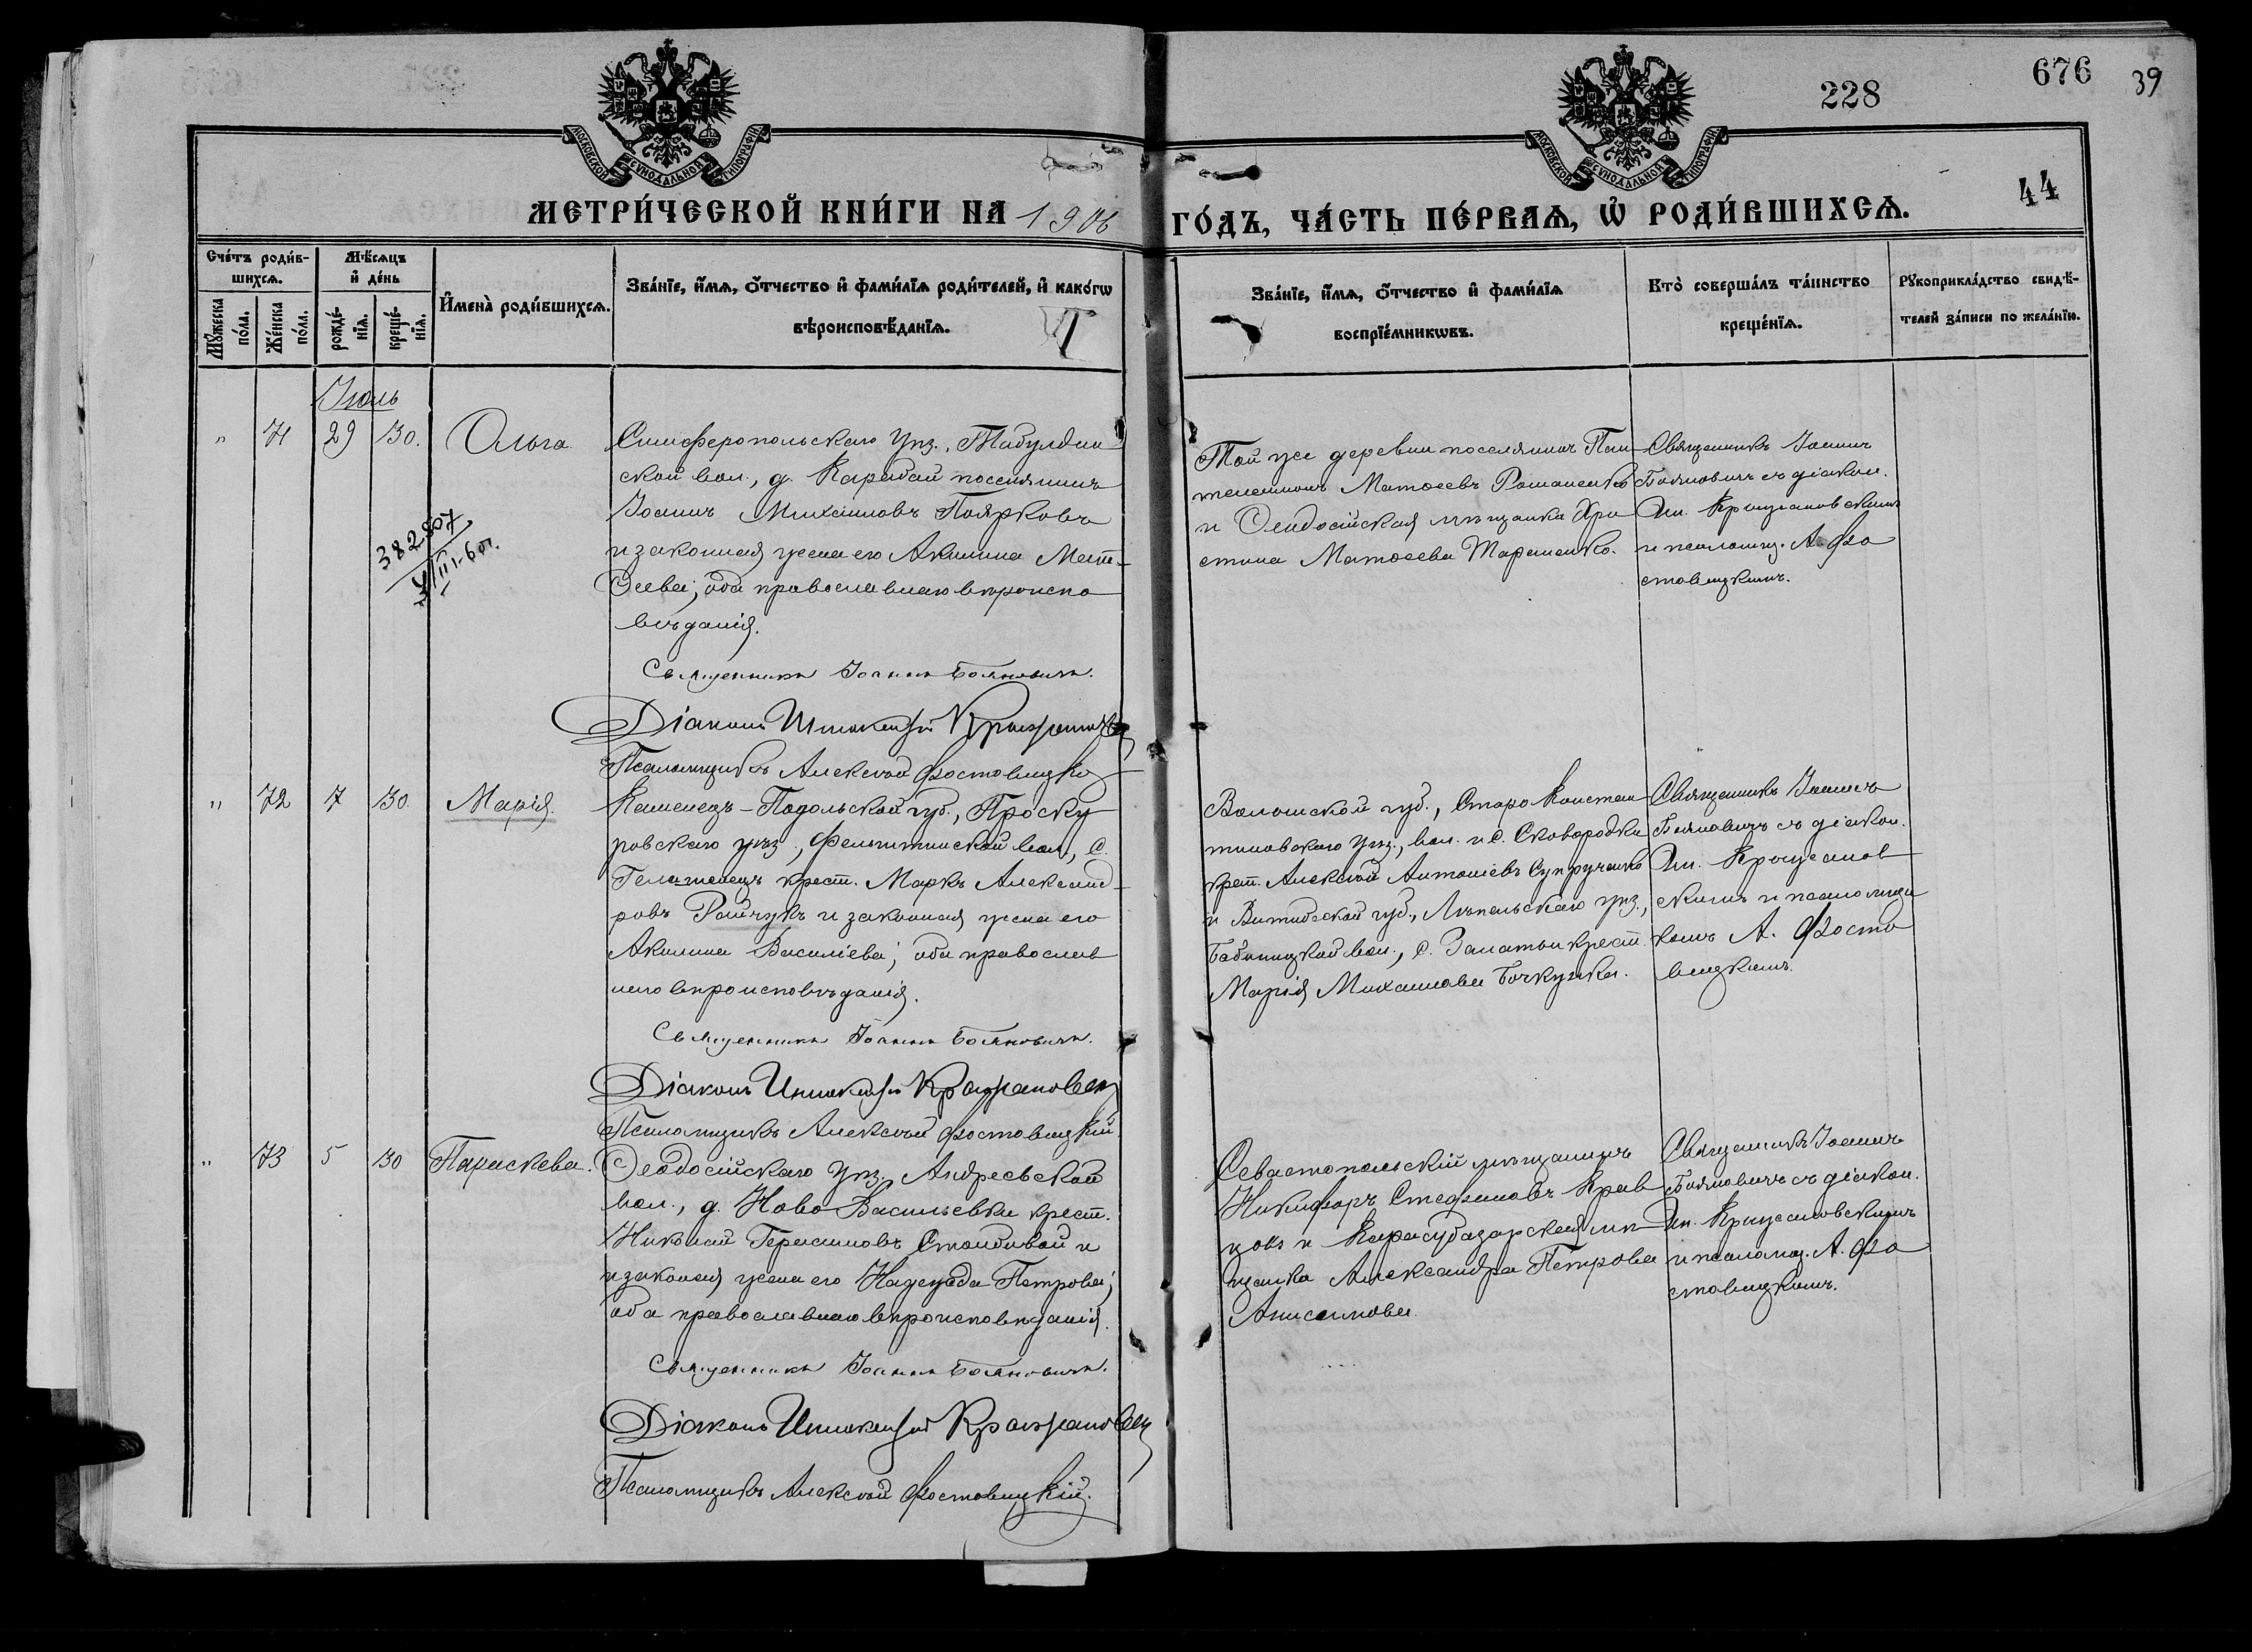 676
39
228
44
МОСКОВСКОЙ СѴНОДАЛЬНОЙ ТИПОГРАФІИ
МОСКОВСКОЙ СѴНОДАЛЬНОЙ ТИПОГРАФІИ
МЕТРИ́ЧЕСКОЙ КНИ́ГИ НА 1906 ГО́ДЪ, ЧА́СТЬ ПЕ́РВАѦ, Ѡ҆ РОДИ́ВШИХСѦ.
Сче́тъ роди́в-
шихсѧ.
Мꙋ́жеска по́ла.
Же́нска по́ла.
Мѣ́сѧцъ
и҆ де́нь
рожде́-
нїѧ.
креще́-
нїѧ.
И҆мена̀ роди́вшихсѧ.
Зва́нїе, и҆́мѧ, ѻ҆́тчество и҆ фами́лїѧ роди́телей, и҆ како́гѡ
вѣроисповѣ́данїѧ.
Зва́нїе, и҆́мѧ, ѻ҆́тчество и҆ фами́лїѧ
воспрїе́мникѡвъ.
Кто̀ соверша́лъ та́инство
креще́нїѧ.
Рꙋкоприкла́дство свидѣ́-
телей за́писи по жела́нїю.
Іюль
" 71 29 30. Ольга
Симферопольскаго уѣз., Табулдин
ской вол., д. Карабай поселянинъ
Іоаннъ Михаиловъ Поярковъ
и законная жена его Акилина Мат-
ѳеева; оба православнаго вѣроиспо
вѣданія.
Священникъ Іоаннъ Бояновичъ.
Діаконъ Иннокентій
Псаломщикъ Алексѣй Фостовицкій
382507
Той же деревни поселянинъ Пан
телеимонъ Матѳеевъ Романенко
и Ѳеодосійская мѣщанка Хри
стина Матѳеева Тараненко.
Священникъ Іоаннъ
Бояновичъ съ діакон.
Ин. Крыжановскимъ
и псаломщ. А. Фо
стовицкимъ.
" 72 7 30. Марія
Каменецъ-Подольской губ., Проску
ровскаго уѣз., Фельштинской вол., с.
крест. Маркъ Александ-
ровъ Райчукъ и законная жена его
Акилина Василіева; оба православ
наго вѣроисповѣданія.
Священникъ Іоаннъ Бояновичъ.
Діаконъ Иннокентій Крыжановскій
Псаломщикъ Алексѣй Фостовицкій.
Волынской губ., Старо Констан
тиновскаго уѣз., вол. и с. Сковородки
крест. Алексѣй Антоніевъ Супрученко
и Витебской губ., Лѣпельскаго уѣз.,
Бабыницкой вол., с. крест.
Марія Михаилова Бочкужка.
Священникъ Іоаннъ
Бояновичъ съ діакон.
Ин. Крыжанов
скимъ и псаломщи
комъ А. Фосто
вицкимъ.
" 73 5 30 Параскева.
Ѳеодосійскаго уѣз. Андреевской
вол., д. Ново Васильевки крест.
Николай Герасимовъ и
и законная жена его Надежда Петрова;
оба православнаго вѣроисповѣданія.
Священникъ Іоаннъ Бояновичъ.
Діаконъ Иннокентій Крыжановскій
Псаломщикъ Алексѣй Фостовицкій.
Севастопольскій мѣщанинъ
Никифоръ Стефановъ Крав
цовъ и Карасубазарская мѣ
щанка Александра Петрова
Анисимова.
Священникъ Іоаннъ
Бояновичъ съ діакон.
Ин. Крыжановскимъ
и псаломщ. А. Фо
стовицкимъ.